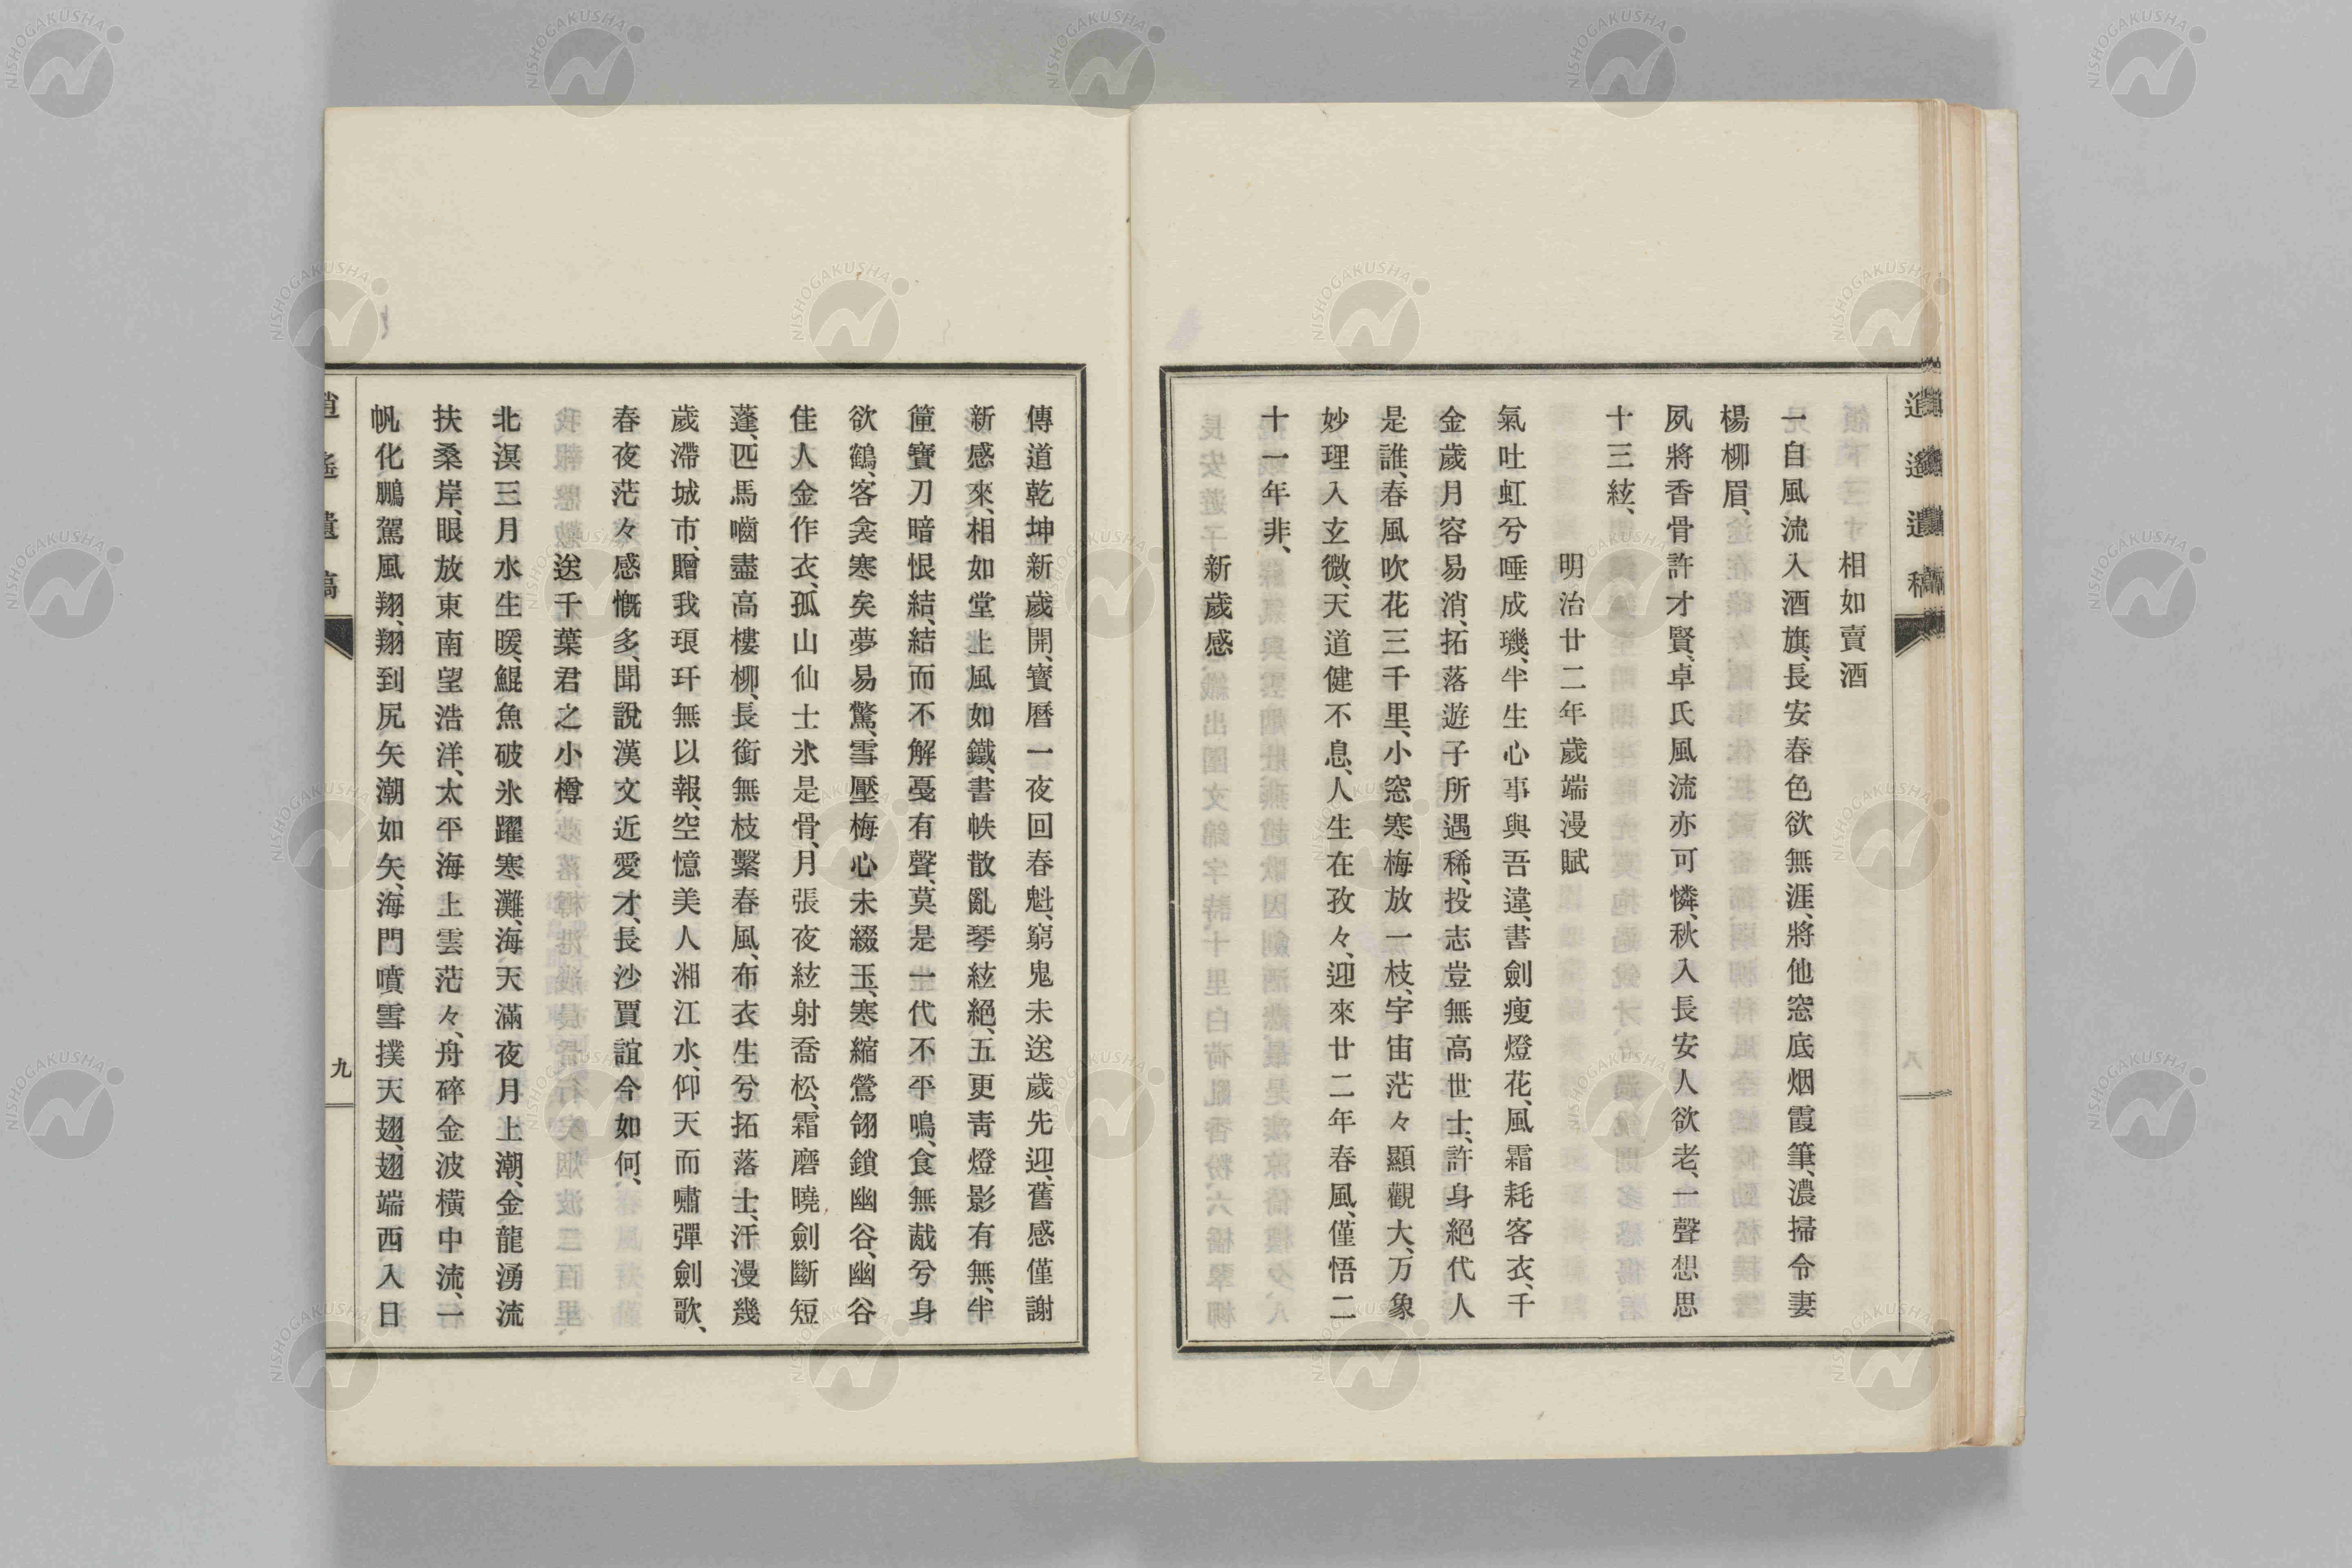 逍遙遺稿
相如賣酒
一自風流入酒旗、長安春色欲無涯、將他窓底烟霞筆、濃掃令妻
楊柳眉、
夙將香骨許才賢、卓氏風流亦可憐、秋入長安人欲老、一聲想思
十三絃、
明治廿二年歲端漫賦
氣吐虹兮唾成璣、半生心事與吾違、書劍瘦燈花、風霜耗客衣、千
金歲月容易消、拓落遊子所遇稀、投志豈無高世士、許身絕代人
是誰、春風吹花三千里、小窓寒梅放一枝、宇宙茫々顯觀大、万象
妙理入玄微、天道健不息、人生在孜々、迎來廿二年春風、僅悟二
十一年非、
新歲感
傳道乾坤新歲開、寶曆一夜回春魁、窮鬼未送歲先迎、舊感僅謝
新感來、相如堂上風如鐵、書帙散亂琴絃絕、五更靑燈影有無、半
篋寶刀暗恨結、結而不解戞有聲、莫是一代不平鳴、食無胾兮身
欲鶴、客衾寒矣夢易驚、雪壓梅心未綴玉、寒縮鶯翎鎖幽谷、幽谷
佳人金作衣、孤山仙士氷是骨、月張夜絃射喬松、霜磨曉劍斷短
蓬、匹馬嚙盡高樓柳、長街無枝繫春風、布衣生兮拓落士、汗漫幾
歲滯城市、贈我琅玕無以報、空憶美人湘江水、仰天而嘯彈劍歌、
春夜茫々感慨多、聞說漢文近愛才、長沙賈誼今如何、
送千葉君之小樽
北溟三月水生暖、鯤魚破氷躍寒灘、海天滿夜月上潮、金龍湧流
扶桑岸、眼放東南望浩洋、太平海上雲茫々、舟碎金波橫中流、一
帆化鵬駕風翔、翔到尻矢潮如矢、海門噴雪撲天翅、翅端西入日
逍遙遺稿
九